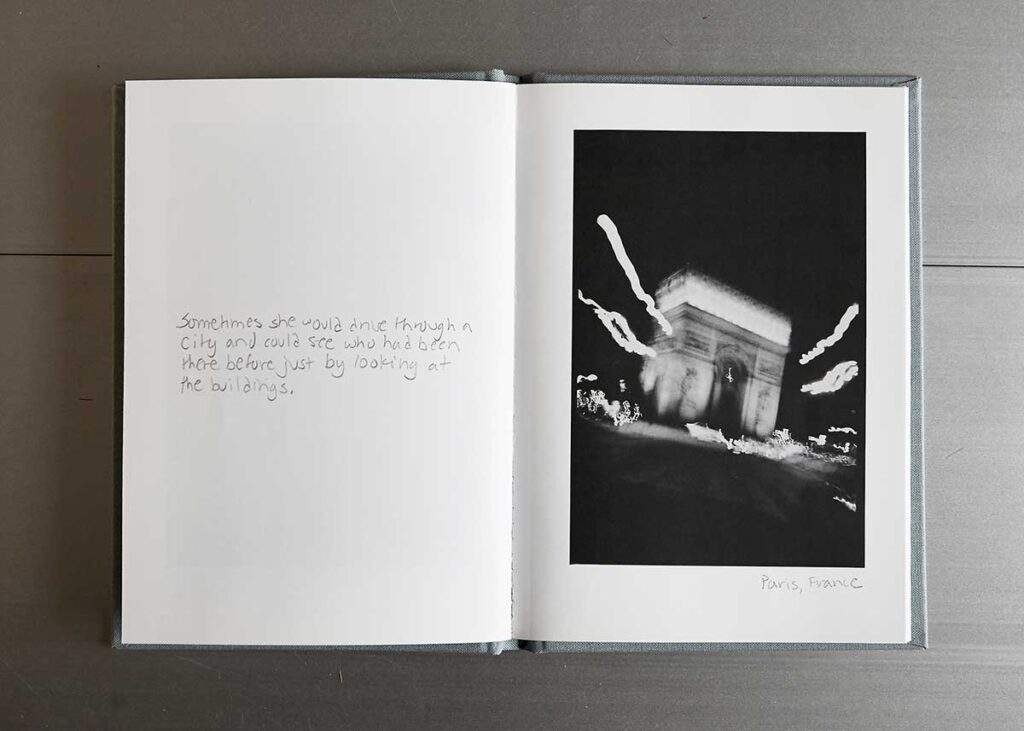 Sometimes she would drive through a
City and could see who had been
there before just by looking at
the buildings.
Paris, France